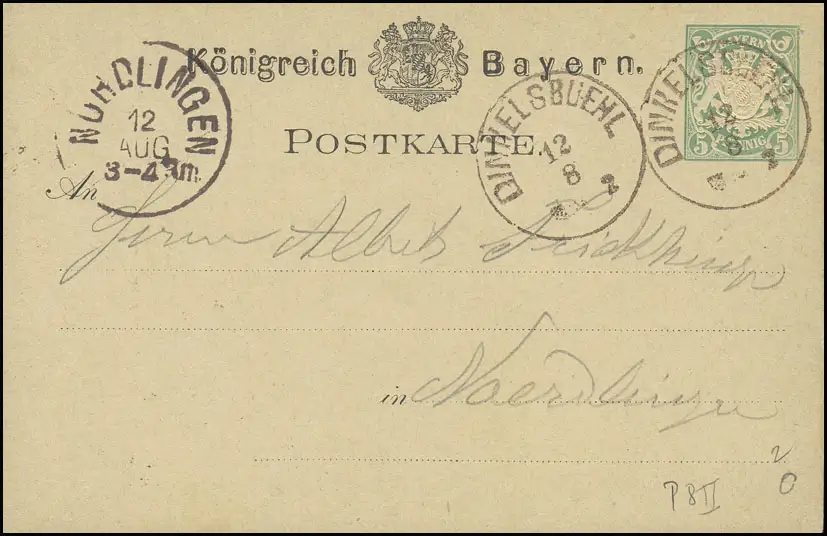 Königreich Bayern.
POSTKARTE.
NÖRDLINGEN
12
AUG
3-4 Nm.
DINKELSBUEHL
12
8
2
BAYERN
5 PFENNIG 5
DINKELSBUEHL
12
8
2
An
Herrn Albert
in Noerdlingen
P 8 II